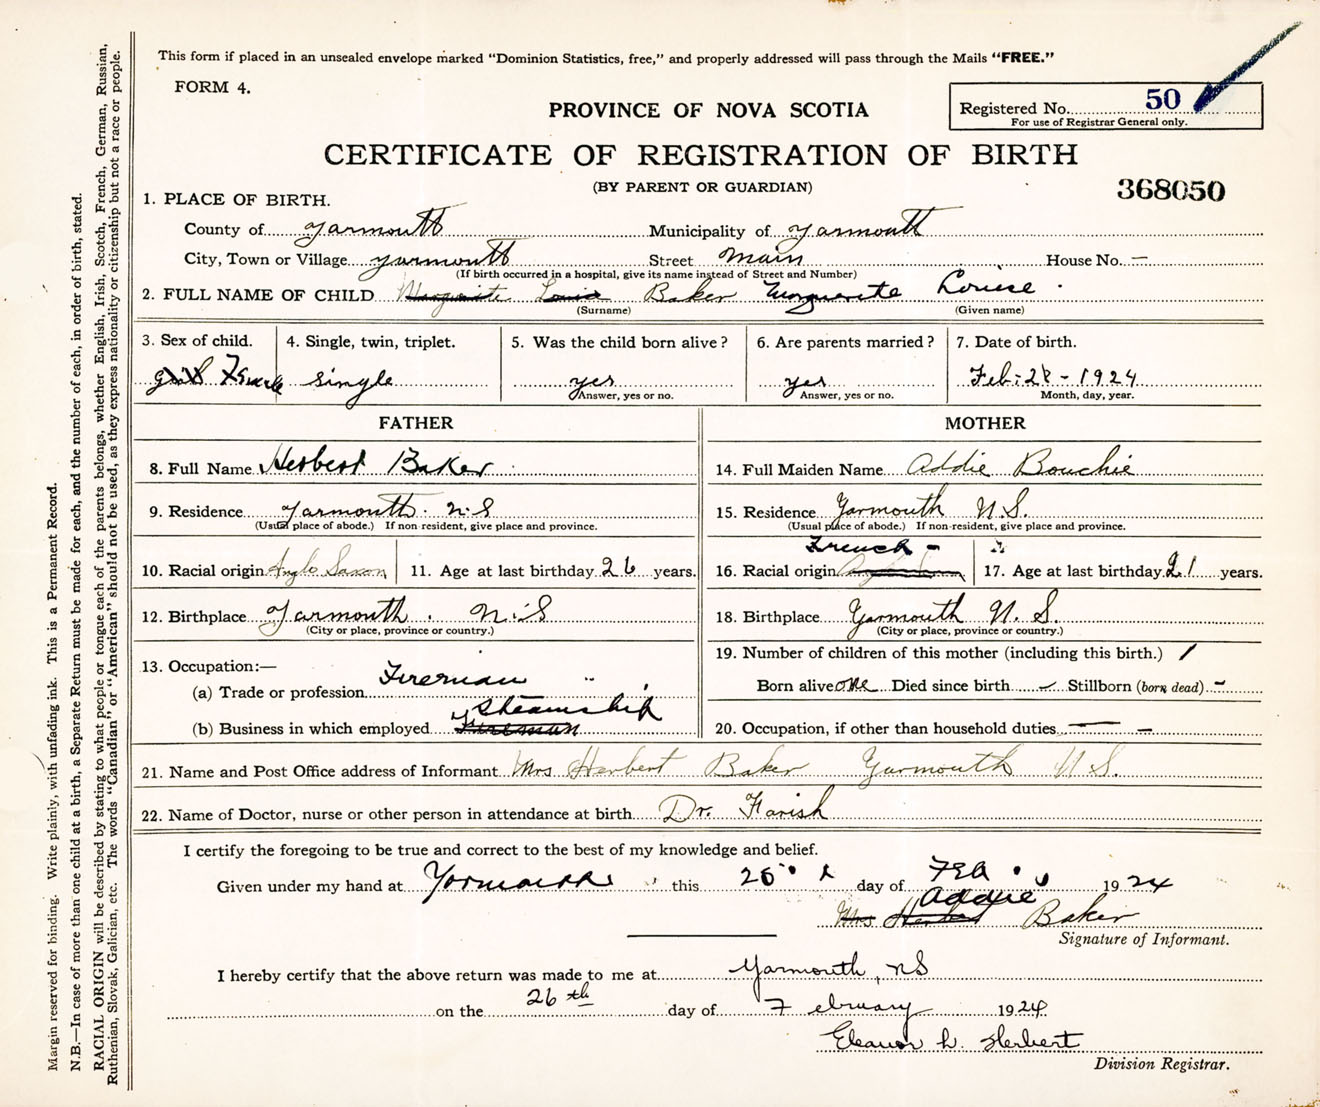 This form if placed in an unsealed envelope marked “Dominion Statistics, free,” and properly addressed will pass through the Mails “FREE.”
FORM 4.
Registered No. 50
For use of Registrar General only.
PROVINCE OF NOVA SCOTIA
CERTIFICATE OF REGISTRATION OF BIRTH
(BY PARENT OR GUARDIAN)
368050
1. PLACE OF BIRTH.
County of Yarmouth Municipality of Yarmouth
City, Town or Village Yarmouth Street Main House No. —
(If birth occurred in a hospital, give its name instead of Street and Number)
2. FULL NAME OF CHILD Marguerite Louise Baker Marguerite Louise
(Surname) (Given name)
3. Sex of child. 4. Single, twin, triplet. 5. Was the child born alive? 6. Are parents married? 7. Date of birth.
girl Female single yes yes Feb: 2 - 1924
Answer, yes or no. Answer, yes or no. Month, day, year.
FATHER MOTHER
8. Full Name Herbert Baker 14. Full Maiden Name Addie Bouchie
9. Residence Yarmouth. N.S 15. Residence Yarmouth N.S.
(Usual place of abode.) If non-resident, give place and province. (Usual place of abode.) If non-resident, give place and province.
French -
10. Racial origin Anglo Saxon 11. Age at last birthday 26 years. 16. Racial origin 17. Age at last birthday 21 years.
12. Birthplace Yarmouth. N.S 18. Birthplace Yarmouth N.S.
(City or place, province or country.) (City or place, province or country.)
13. Occupation:— 19. Number of children of this mother (including this birth.) 1
(a) Trade or profession Fireman Born alive one Died since birth — Stillborn (born dead) -
Steamship
(b) Business in which employed Fireman 20. Occupation, if other than household duties — —
21. Name and Post Office address of Informant Mrs Herbert Baker Yarmouth N.S.
22. Name of Doctor, nurse or other person in attendance at birth Dr. Farish
I certify the foregoing to be true and correct to the best of my knowledge and belief.
Given under my hand at Yarmouth this 25 day of Feb 1924
Addie
Mrs Herbert Baker
Signature of Informant.
I hereby certify that the above return was made to me at Yarmouth, NS
on the 26th day of February 1924
Eleanor L. Herbert
Division Registrar.
Margin reserved for binding. Write plainly, with unfading ink. This is a Permanent Record.
N.B.—In case of more than one child at a birth, a Separate Return must be made for each, and the number of each, in order of birth, stated.
RACIAL ORIGIN will be described by stating to what people or tongue each of the parents belongs, whether English, Irish, Scotch, French, German, Russian,
Ruthenian, Slovak, Galician, etc. The words “Canadian” or “American” should not be used, as they express nationality or citizenship but not a race or people.